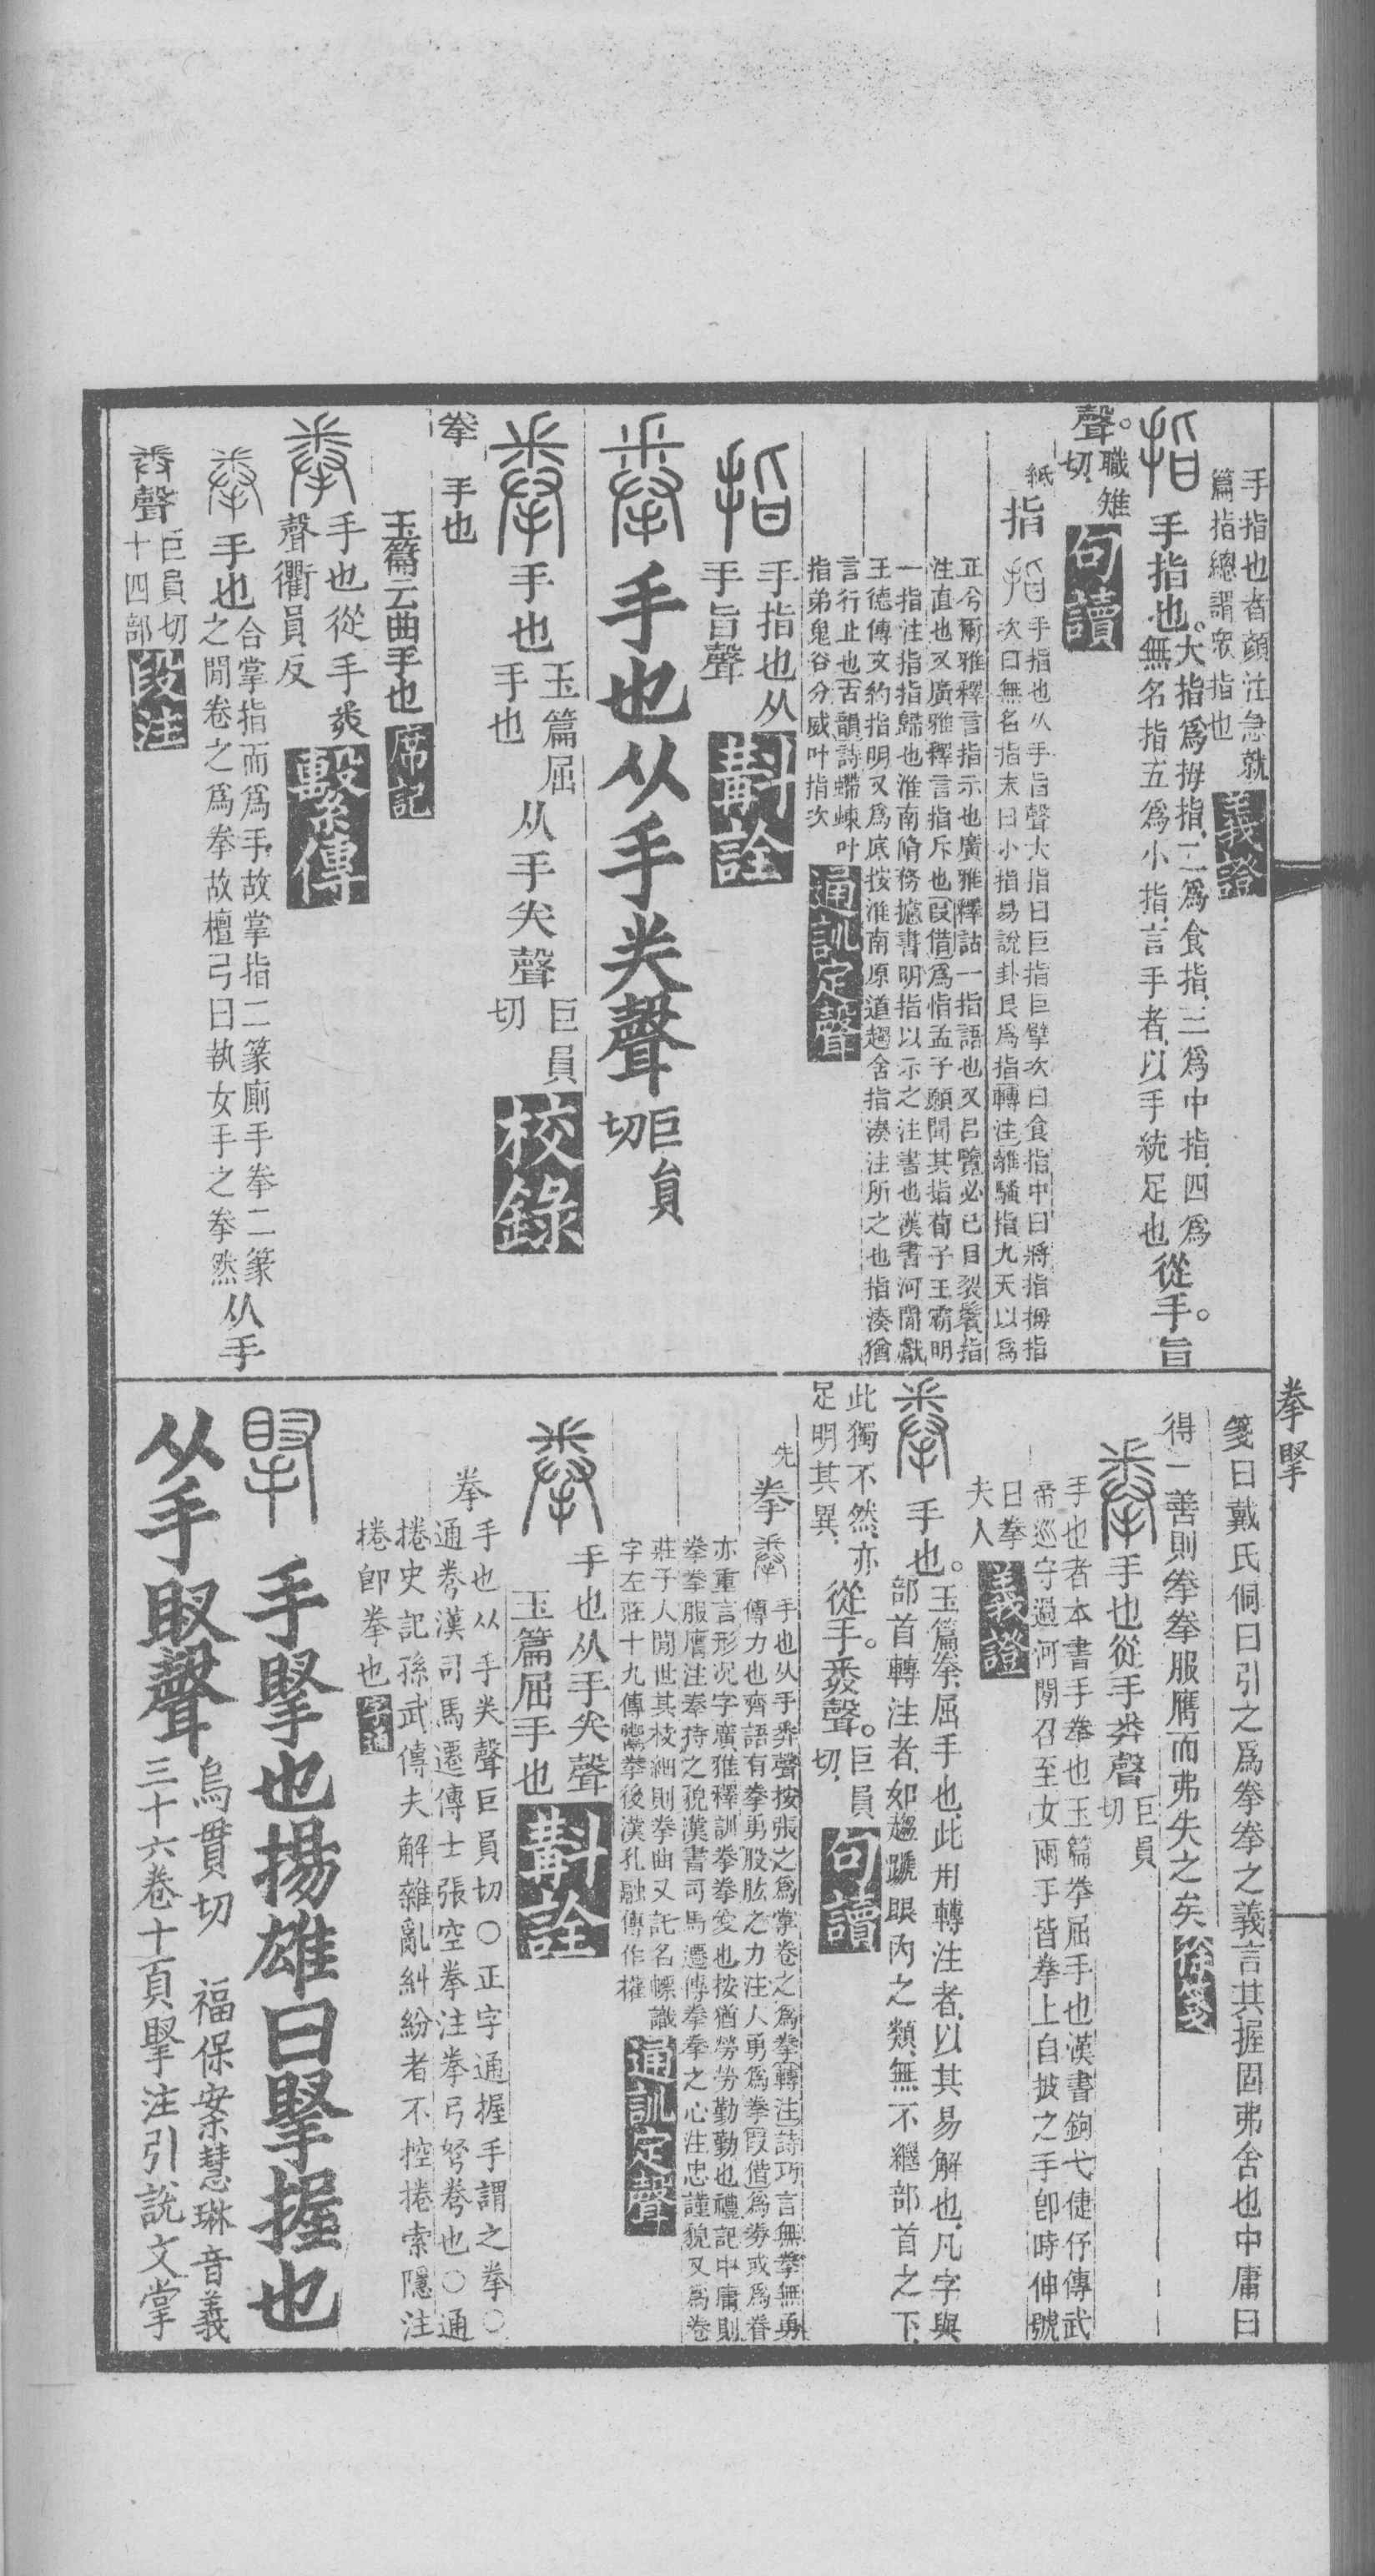 手指也者顔注急就
篇指總謂衆指也
義證
指
手指也。
大指爲拇指、二爲食指、三爲中指、四爲
無名指五爲小指、言手者、以手統足也
從手。旨
聲。
職雉
切、
句讀
紙
指
手指也从手旨聲大指曰巨指巨擘次曰食指中曰將指拇指
次曰無名指末曰小指易說卦艮爲指轉注離騷指九天以爲
正兮爾雅釋言指示也廣雅釋詁一指語也又呂覽必己目裂鬢指
注直也又廣雅釋言指斥也叚借爲恉孟子願聞其指荀子王霸明
一指注指指歸也淮南脩務攄書明指以示之注書也漢書河閒獻
王德傳文約指明又爲底按淮南原道趨舍指湊注所之也指湊猶
言行止也古韻詩蝃蝀叶
指弟鬼谷分威叶指次
通訓定聲
指
手指也从
手旨聲
斠詮
拳
手也从手𢍏聲
巨員
切
拳
手也
玉篇屈
手也
从手𢍏聲
巨員
切
校錄
拳
手也
玉篇云曲手也
席記
拳
手也從手𢍏
聲衢員反
繫傳
拳
手也
合掌指而爲手、故掌指二篆廁手拳二篆
之閒卷之爲拳故檀弓曰執女手之拳然
从手
𢍏聲
巨員切
十四部
段注
拳掔
箋曰戴氏侗曰引之爲拳拳之義言其握固弗舍也中庸曰
得一善則拳拳服膺而弗失之矣
徐箋
拳
手也從手𢍏聲
巨員
切
手也者本書手拳也玉篇拳屈手也漢書鉤弋倢伃傳武
帝巡守過河閒召至女兩手皆拳上自披之手卽時伸號
曰拳
夫人
義證
拳
手也。
玉篇拳、屈手也、此用轉注者、以其易解也、凡字與
部首轉注者、如趨蹏眼內之類、無不繼部首之下、
此獨不然、亦
足明其異、
從手。𢍏聲。
巨員
切、
句讀
先
拳
手也从手𢍏聲按張之爲掌卷之爲拳轉注詩巧言無拳無勇
傳力也齊語有拳勇股肱之力注人勇爲拳叚借爲觠或爲眷
亦重言形況字廣雅釋訓拳拳愛也按猶勞勞勤勤也禮記中庸則
拳拳服膺注奉持之貌漢書司馬遷傳拳拳之心注忠謹貌又爲卷
莊子人閒世其枝細則拳曲又託名幖識
字左莊十九傳鬻拳後漢孔融傳作權
通訓定聲
拳
手也从手𢍏聲
玉篇屈手也
斠詮
拳
手也从手𢍏聲巨員切〇正字通握手謂之拳〇
通𢎠漢司馬遷傳士張空拳注拳弓弩𢎠也〇通
捲史記孫武傳夫解雜亂糾紛者不控捲索隱注
捲卽拳也
字通
掔
手掔也揚雄曰掔握也
从手𠬛聲
烏貫切　福保案慧琳音義
三十六卷十頁掔注引說文掌